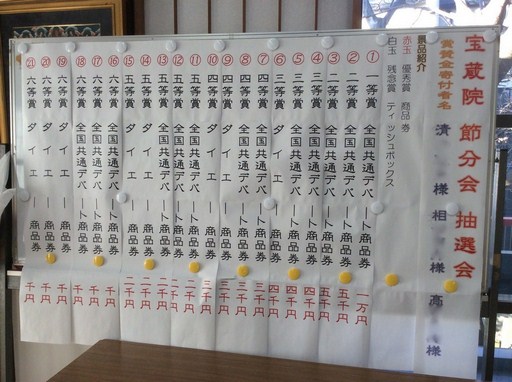 宝蔵院 節分会 抽選会
寄付者名 清 様 相 様 高 様
景品紹介
赤玉 優秀賞 商品券
白玉 残念賞 ティッシュボックス
① 一等賞 全国共通デパート商品券 一万円
② 二等賞 全国共通デパート商品券 五千円
③ 二等賞 全国共通デパート商品券 五千円
④ 三等賞 全国共通デパート商品券 四千円
⑤ 三等賞 全国共通デパート商品券 四千円
⑥ 三等賞 ダイエー商品券 四千円
⑦ 四等賞 全国共通デパート商品券 三千円
⑧ 四等賞 全国共通デパート商品券 三千円
⑨ 四等賞 ダイエー商品券 三千円
⑩ 四等賞 ダイエー商品券 三千円
⑪ 五等賞 全国共通デパート商品券 二千円
⑫ 五等賞 全国共通デパート商品券 二千円
⑬ 五等賞 全国共通デパート商品券 二千円
⑭ 五等賞 ダイエー商品券 二千円
⑮ 五等賞 ダイエー商品券 二千円
⑯ 六等賞 全国共通デパート商品券 千円
⑰ 六等賞 全国共通デパート商品券 千円
⑱ 六等賞 全国共通デパート商品券 千円
⑲ 六等賞 ダイエー商品券 千円
⑳ 六等賞 ダイエー商品券 千円
㉑ 六等賞 ダイエー商品券 千円